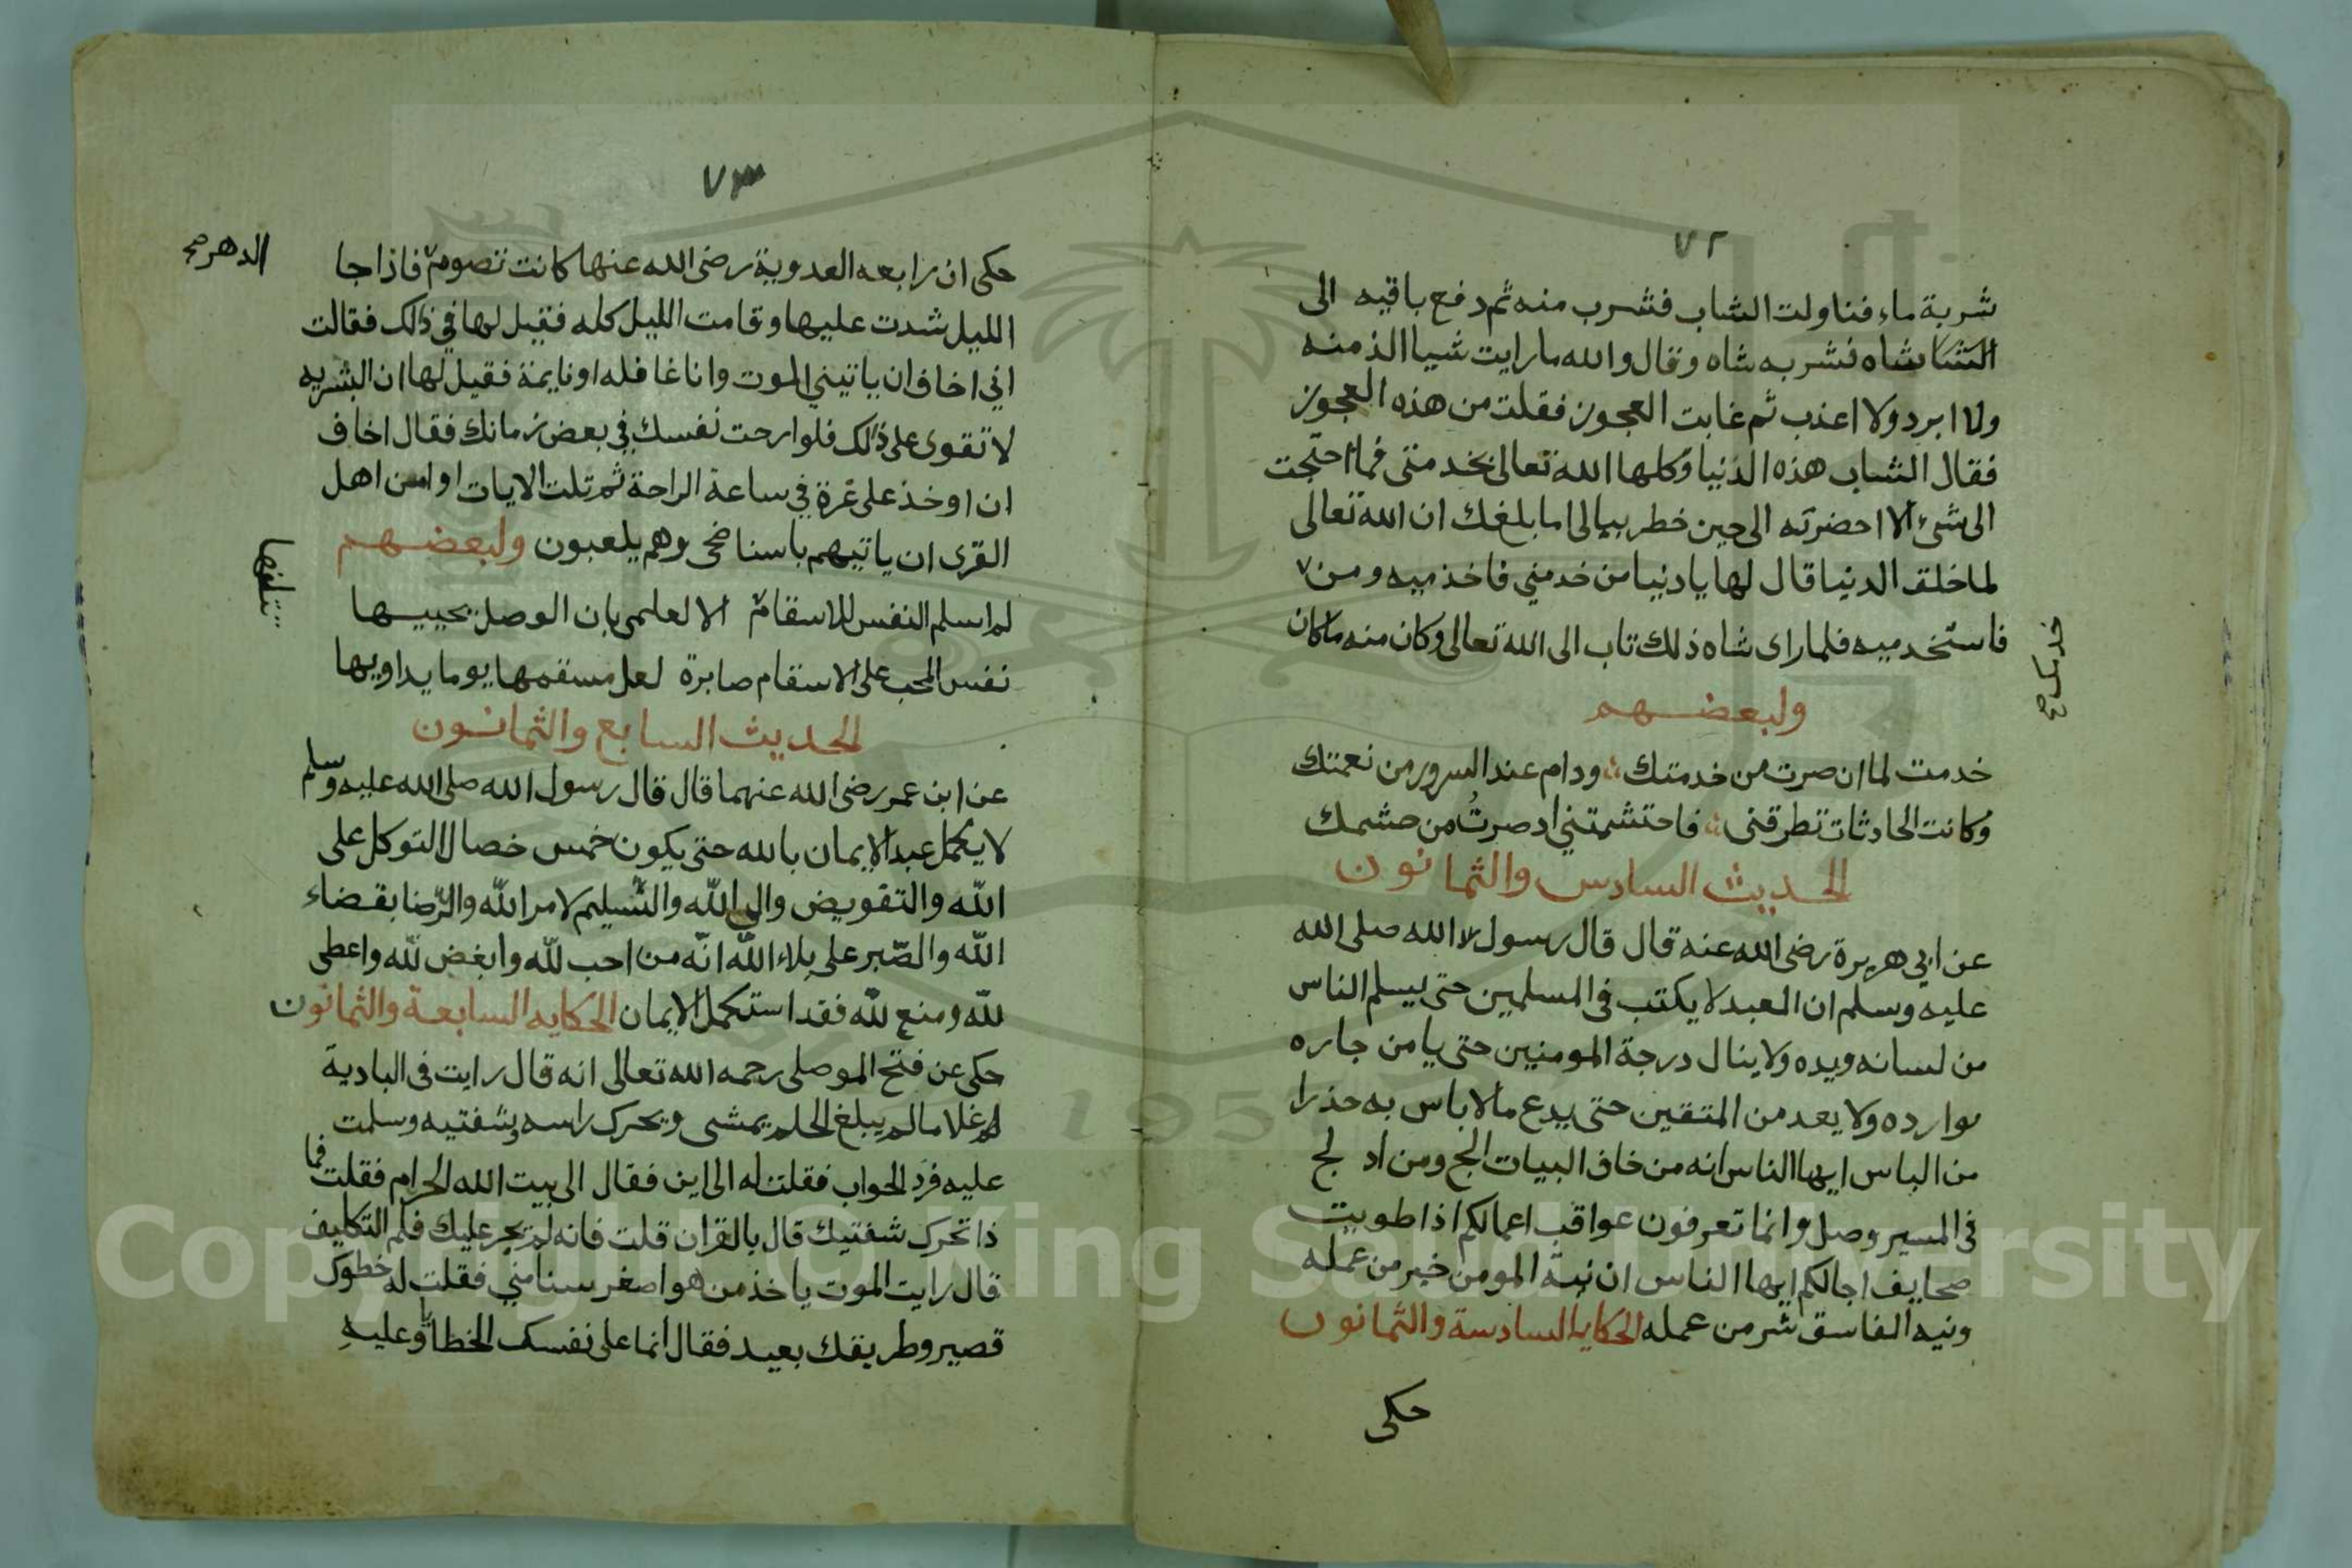 ٧٢
شربة ماء فناولت الشاب فشرب منه ثم دفع باقيه الى
شاه فشربه شاه وقال والله ما رايت شيا الذ منه
ولا ابرد ولا اعذب ثم غابت العجوز فقلت من هذه العجوز
فقال الشاب هذه الدنيا وكلها الله تعالى بخدمتى فما احتجت
الى شئ الا احضرته الى حين خطر ببالى اما بلغك ان الله تعالى
لما خلق الدنيا قال لها يا دنيا من خدمني فاخدميه ومن
خدمك صح
فاستخدميه فلما راى شاه ذلك تاب الى الله تعالى وكان منه ما كان
ولبعضهم
خدمت لما ان صرت من خدمتك ؞ ودام عند السرور من نعمتك
وكانت الحادثات تطرقنى ؞ فاحتشمتني اد صرتُ من حشمك
الحديث السادس والثمانون
عن ابي هريرة رضى الله عنه قال قال رسول الله صلى الله
عليه وسلم ان العبد لا يكتب فى المسلمين حتى يسلم الناس
من لسانه ويده ولا ينال درجة المومنين حتى يامن جاره
بوارده ولا يعد من المتقين حتى يدع ما لا باس به حذرا
من الباس ايها الناس انه من خاف البيات الج ومن اد لج
فى المسير وصل وانما تعرفون عواقب اعمالكم اذا طويت
صحايف اجالكم ايها الناس ان نية المومن خير من عمله
ونيه الفاسق شر من عمله الحكايه السادسة والثمانون
حكى
٧٣
حكى ان رابعه العدوية رضى الله عنها كانت تصوم فاذا جا
الدهر صح
الليل شدت عليها وقامت الليل كله فقيل لها في ذلك فقالت
اني اخاف ان ياتيني الموت وانا غافله او نايمة فقيل لها ان البشريه
لا تقوى على ذلك فلو ارحت نفسك في بعض زمانك فقال اخاف
ان اوخذ على غرة في ساعة الراحة ثم تلت الايات او امن اهل
القرى ان ياتيهم باسنا ضحى وهم يلعبون ولبعضهم
لم اسلم النفس للاسقام الا لعلمى بان الوصل يحييها
تتلفها
نفس المحب على الاسقام صابرة لعل مسقمها يوما يداويها
الحديث السابع والثمانون
عن ابن عمر رضى الله عنهما قال قال رسول الله صلى الله عليه وسلم
لا يكمل عبد الايمان بالله حتى يكون خمس خصال التوكل على
الله والتقويض الى الله والتسليم لامر الله والرّضا بقضاء
الله والصّبر على بلاء الله انّه من احب لله وابغض لله واعطى
لله ومنع لله فقد استكمل الايمان الحكايه السابعة والثمانون
حكى عن فتح الموصلى رحمه الله تعالى انه قال رايت فى البادية
غلاما لم يبلغ الحلم يمشى ويحرك راسه وشفتيه وسلمت
عليه فرد الجواب فقلت له الى اين فقال الى بيت الله الحرام فقلت فما
ذا تحرك شفتيك قال بالقران قلت فانه لم يجر عليك قلم التكليف
قال رايت الموت ياخذ من هو اصغر سنا مني فقلت له خطوك
قصير وطريقك بعيد فقال انما على نفسك الخطا وعليه
Copyright © King Saud University
1957